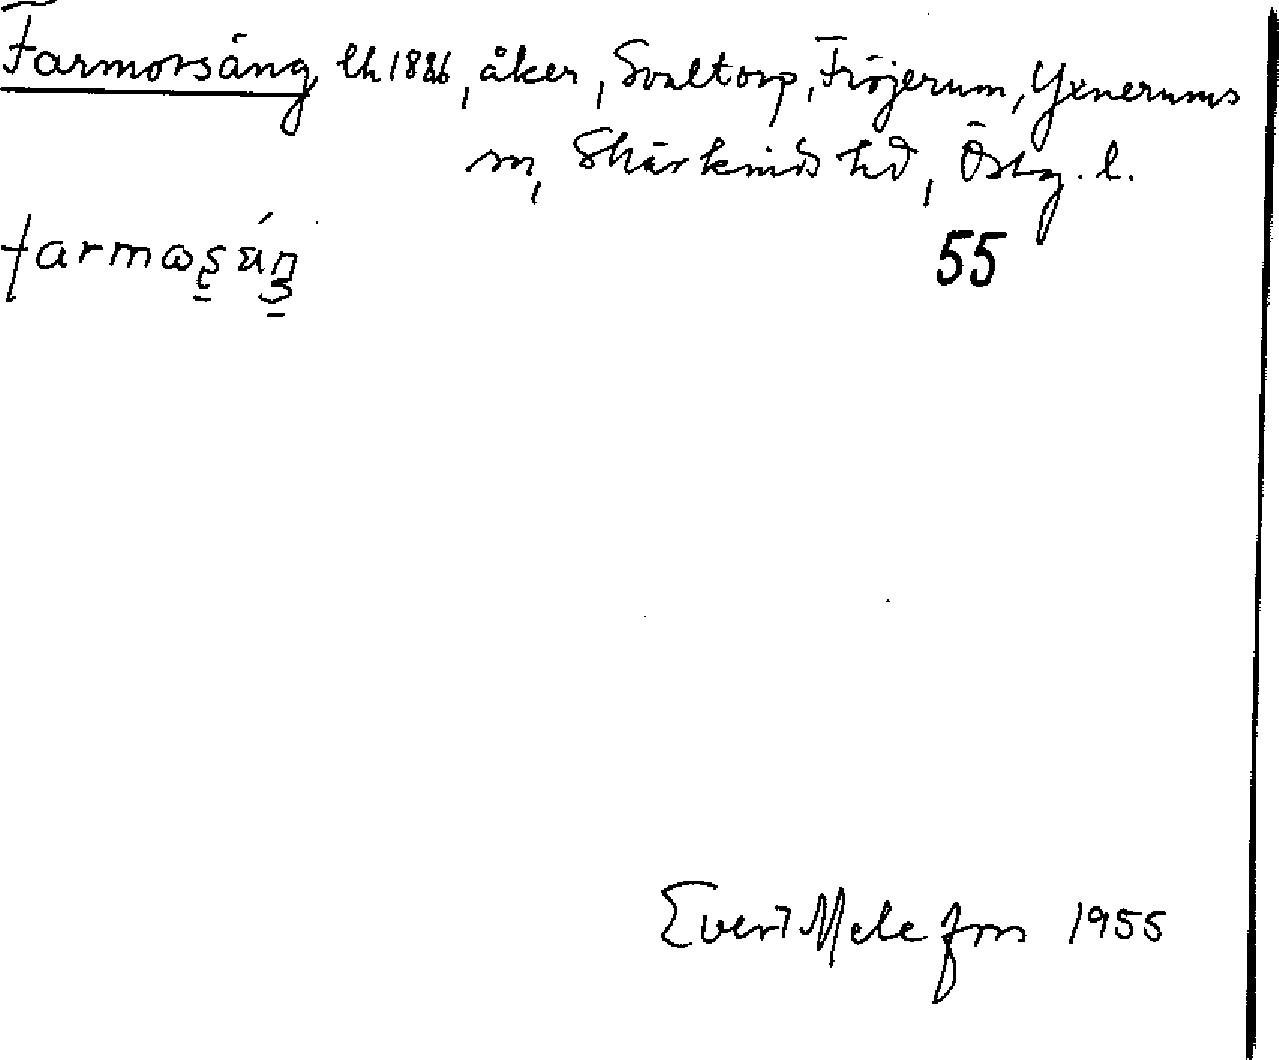 Farmorsäng, lh 1866, åker, Svaltorp, Fröjerum, Yxnerums
sn, Skärkinds hd, Östg. l.
55
Evert Melefors 1955